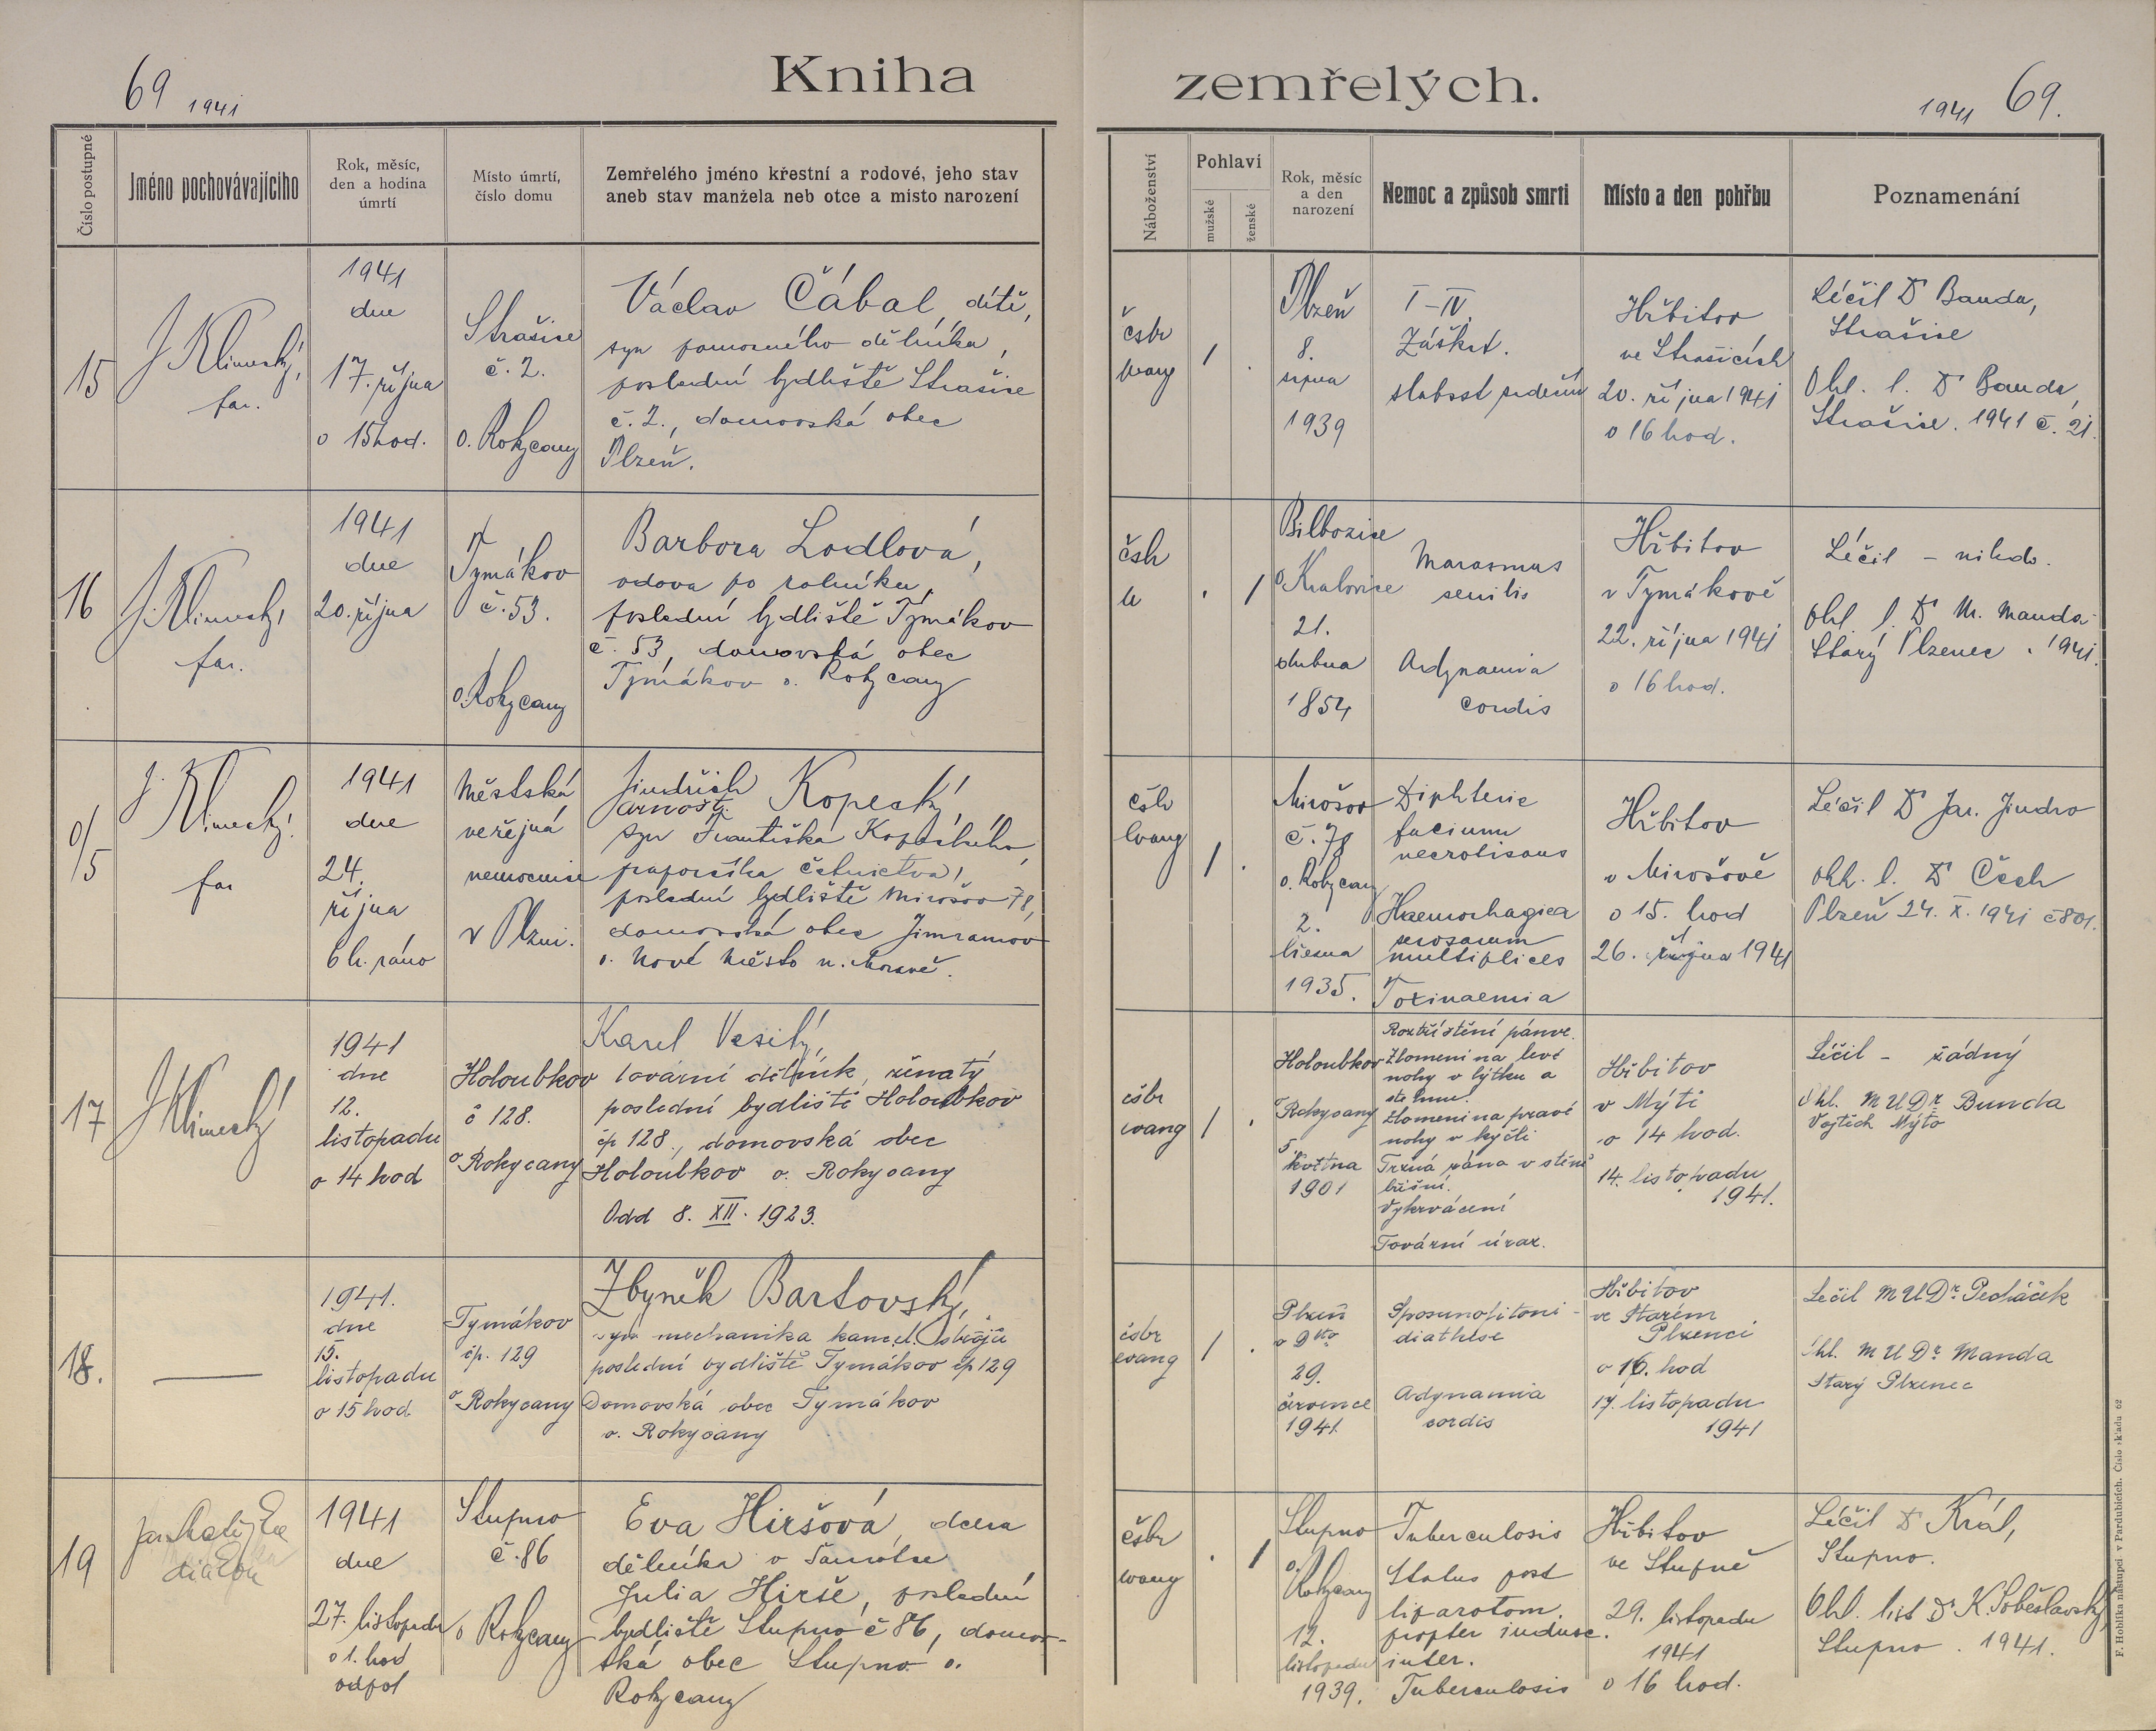 Kniha zemřelých.
69 1941
1941 69.
Číslo postupné
Jméno pochovávajícího
Rok, měsíc,
den a hodina
úmrtí
Místo úmrtí,
číslo domu
Zemřelého jméno křestní a rodové, jeho stav
aneb stav manžela neb otce a místo narození
Náboženství
Pohlaví
mužské
ženské
Rok, měsíc
a den
narození
Nemoc a způsob smrti
Místo a den pohřbu
Poznamenání
15
J. Klimecký,
far.
1941
dne
17. října
o 15 hod.
Strašice
č. 2.
o. Rokycany
Václav Čábal, dítě,
syn pomocného dělníka,
poslední bydliště Strašice
č. 2., domovská obec
Plzeň.
čsbr
evang
/
.
Plzeň
8.
srpna
1939
I-IV.
Záškrt.
slabost srdeční
Hřbitov
ve Strašicích
20. října 1941
o 16 hod.
Léčil Dr Bauda,
Strašice
Ohl. l. Dr Bauda,
Strašice. 1941 č. 21.
16
J. Klimecký,
far.
1941
dne
20. října
Tymákov
č. 53.
o. Rokycany
Barbora Lodlová,
vdova po rolníku,
poslední bydliště Tymákov
č. 53, domovská obec
Tymákov o. Rokycany
.
/
o. Kralovice
21.
dubna
1854
Marasmus
senilis
Adynamia
cordis
Hřbitov
v Tymákově
22. října 1941
o 16 hod.
Léčil - nikdo.
ohl. l. Dr M. Manda
Starý Plzenec . 1941.
0/5
J. Klimecký.
far
1941
dne
24.
října
6 h. ráno
Městská
veřejná
nemocnice
v Plzni.
Jindřich
Arnošt Kopecký,
syn Františka Kopeckého,
praporčíka četnictva,
poslední bydliště Mirošov 78,
domovská obec Jimramov
o. Nové Město n. Moravě.
evang
/
.
Mirošov
č. 78
o. Rokycany
2.
1935.
Diphterie
faucium
necrotisans
Haemorhagiea
serosarum
multiplices
Toxinaemia
Hřbitov
v Mirošově
o 15. hod
26. října 1941
Léčil Dr Jar. Jindro
ohl. l. Dr Čech
Plzeň 24. X. 1941 č 801.
17
J. Klimecký
1941
dne
12.
listopadu
o 14 hod
Holoubkov
č 128.
o Rokycany
Karel Veselý,
tovární dělník, ženatý
poslední bydliště Holoubkov
čp 128., domovská obec
Holoubkov o. Rokycany
Odd 8. XII. 1923.
čsbr
evang
/
.
Holoubkov
o Rokycany
5
května
1901
Roztříštění pánve.
Zlomenina levé
nohy v lýtku a
stehnu.
Zlomenina pravé
nohy v kyčli
Tržná rána v stěně
břišní.
Vykrvácení
Tovární úraz.
Hřbitov
v Mýtě
o 14 hod.
14. listopadu
1941.
Léčil - žádný
Ohl. MUDr Bunda
Vojtěch Mýto
18.
1941.
dne
15.
listopadu
o 15 hod
Tymákov
čp. 129
o Rokycany
Zbyněk Bartovský,
syn mechanika kancel. strojů
poslední bydliště Tymákov čp 129
Domovská obec Tymákov
o. Rokycany
čsbr
evang
/
.
Plzeň
29.
července
1941
diathese
Adynamia
cordis
Hřbitov
ve Starém
Plzenci
o 16. hod
17. listopadu
1941
Léčil MUDr Pecháček
Ohl. MUDr Manda
Starý Plzenec
19
diakon
1941
dne
27. listopadu
o 1. hod
odpol
Stupno
č. 86
o Rokycany
Eva Hiršová, dcera
dělníka v Šamotce
Julia Hirše, poslední
bydliště Stupno č 86, domov-
ská obec Stupno o.
Rokycany
čsbr
evang
.
/
Stupno
o.
Rokycany
12.
listopadu
1939.
Tuberculosis
Status post
liparotom.
propter induse.
inter.
Tuberculosis
Hřbitov
ve Stupně
29. listopadu
1941
o 16 hod.
Léčil Dr Král,
Stupno.
Ohl. list Dr K. Soběslavský,
Stupno . 1941.
F. Hoblíka nástupci v Pardubicích. Číslo skladu 62